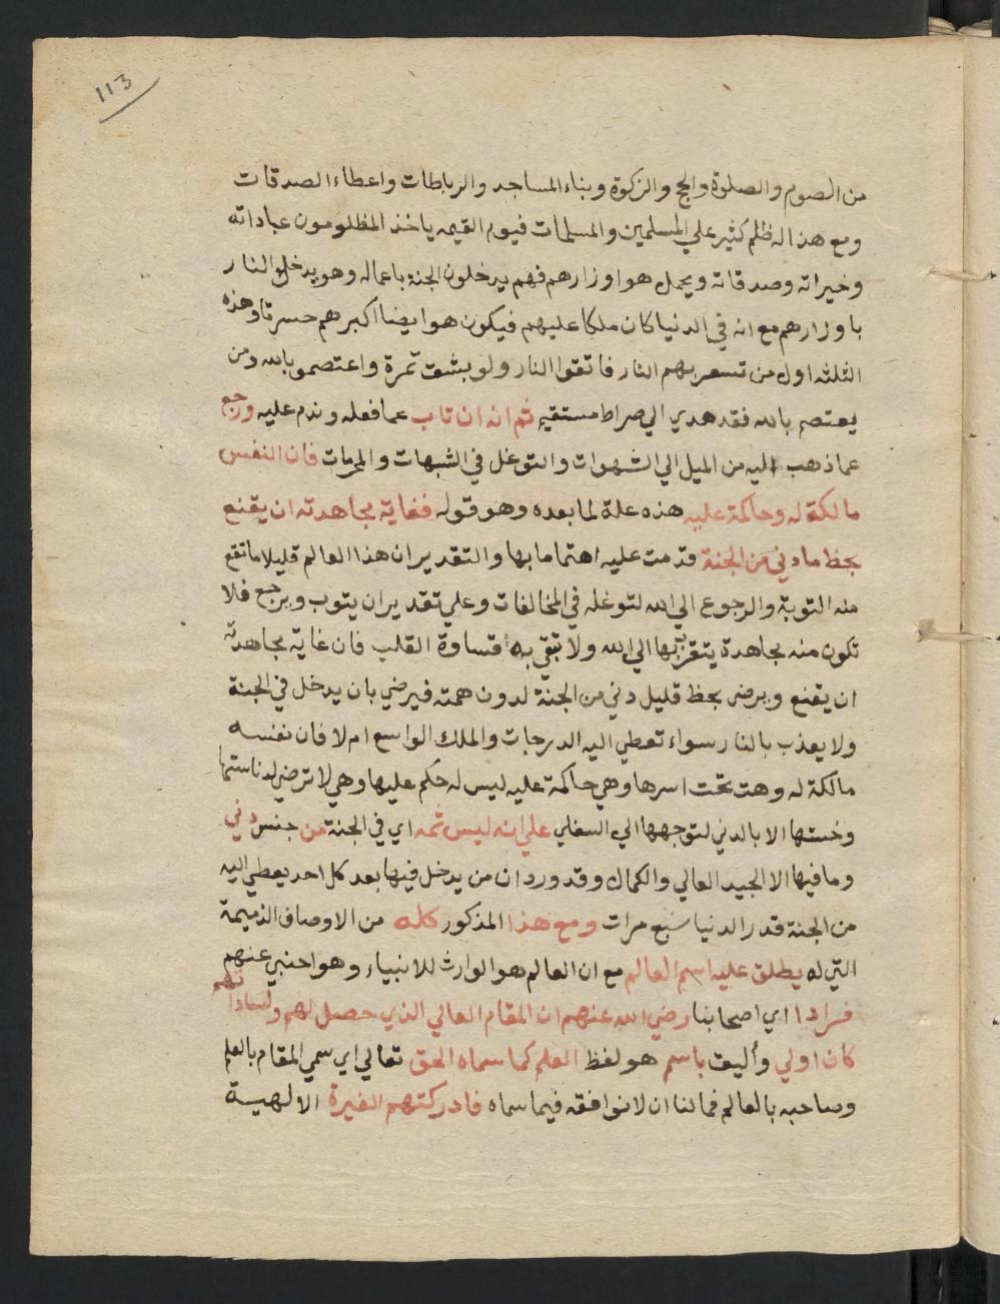 113
من الصوم والصلوة والحج والزكوة وبناء المساجد والرباطات واعطاء الصدقات
ومع هذا له ظلم كثير علي المسلمين والمسلمات فيوم القيمه ياخذ المظلومون عباداته
وخيراته وصدقاته ويحمل هو اوزارهم فهم يدخلون الجنة باعماله وهو يدخل النار
باوزارهم مع انه في الدنيا كان ملكا عليهم فيكون هو ايضا اكبرهم حسرتا وهذه
الثلثه اول من تسعر بهم النار فاتقوا النار ولو بشق تمرة واعتصمو بالله ومن
يعتصم بالله فقد هدي الي صراط مستقيم ثم انه ان تاب عما فعله وندم عليه ورجع
عما ذهب اليه من الميل الي الشهوات والتوغل في الشبهات والمحرمات فان النفس
مالكة له وحاكمة عليه هذه علة لما بعده وهو قوله فغاية مجاهدته ان يقنع
بحظ ما دني من الجنة قدمت عليه اهتماما بها والتقدير ان هذا العالم قليلا ما تقع
منه التوبة والرجوع الي الله لتوغله في المخالفات وعلي تقدير ان يتوب ويرجع فلا
تكون منه مجاهدة يتقرب بها الي الله ولا تبقي به قساوة القلب فان غاية مجاهدته
ان يقنع ويرضي بحظ قليل دني من الجنة لدون همته فيرضي بان يدخل في الجنة
ولا يعذب بالنار سواء تعطي اليه الدرجات والملك الواسع ام لا فان نفسه
مالكة له وهت تحت اسرها وهي حاكمة عليه ليس له حكم عليها وهي لا ترضي لدناستها
وخستها الا بالدني لتوجهها الي السفلي علي انه ليس ثمه اي في الجنة من جنس دني
وما فيها الا الجيد العالي والكمال وقد ورد ان من يدخل فيها بعد كل احد يعطي اليه
من الجنة قدر الدنيا سبع مرات ومع هذا المذكور كله من الاوصاف الذميمة
التي له يطلق عليه اسم العالم مع ان العالم هو الوارث للانبياء وهو اجنبي عنهم
فراوا اي اصحابنا رضي الله عنهم ان المقام العالي الذي حصل لهم ولساداتهم
كان اولي وأليق باسم هو لفظ العلم كما سماه الحق تعالي اي سمي المقام بالعلم
وصاحبه بالعالم فمالنا ان لا نوافقه فيما سماه فادركتهم الغيرة الالهية